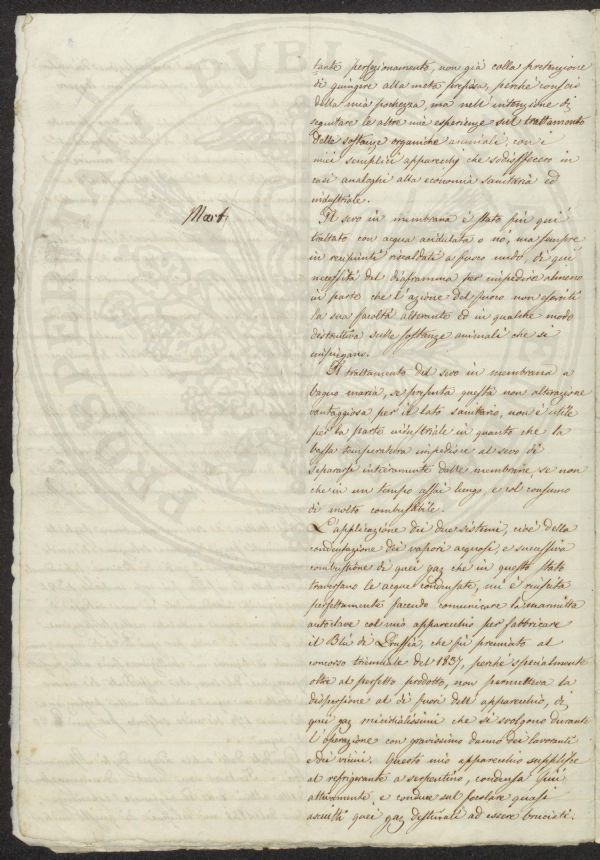 tanto perfezionamento, non già colla pretenzione
di giungere alla meta prefissa, perchè conscio
della mia pochezza, ma nell'intenzione di
seguitare le altre mie esperienze sul trattamento
delle sostanze organiche animali, con i
miei semplici apparechj che sodisffecero in
casi analoghi alla economia sanitaria ed
industriale.
Mart.
Il sevo in membrana è stato fin qui
trattato con acqua acidulata o nò, ma sempre
in recipienti riscaldati a fuoco nudo, di qui
necessità del diaframma per impedire almeno
in parte che l'azione del fuoco non eserciti
la sua facoltà alterante ed in qualche modo
distruttiva sulle sostanze animali che si
impiegano.
Il trattamento del sevo in membrana a
bagno maria, se presenta questa non alterazione
vantaggiosa per il lato sanitario, non è utile
per la parte industriale in quanto che la
bassa temperatura impedisce al sevo di
separarsi intieramente dalle membrane, se non
che in un tempo assai lungo, e col consumo
di molto combustibile.
L'applicazione dei due sistemi, cioè della
condensazione dei vapori acquosi, e successiva
combustione di quei gaz che in questo stato
traversano le acque condensate, mi è riuscita
perfettamente facendo comunicare la marmitta
autoclave col mio apparecchio per fabbricare
il Blù di Prussia, che fù premiato al
concorso triennale del 1837, perchè specialmente
oltre al perfetto prodotto, non permetteva la
dispersione al di fuori dell'apparecchio, di
quei gaz micidialissimi che si svolgono durante
l'operazione con gravissimo danno dei lavoranti
e dei vicini. Questo mio apparecchio supplisce
al refrigerante a serpentino, condensa
attivamente e conduce sul focolare quasi
asciutti quei gaz destinati ad essere bruciati.